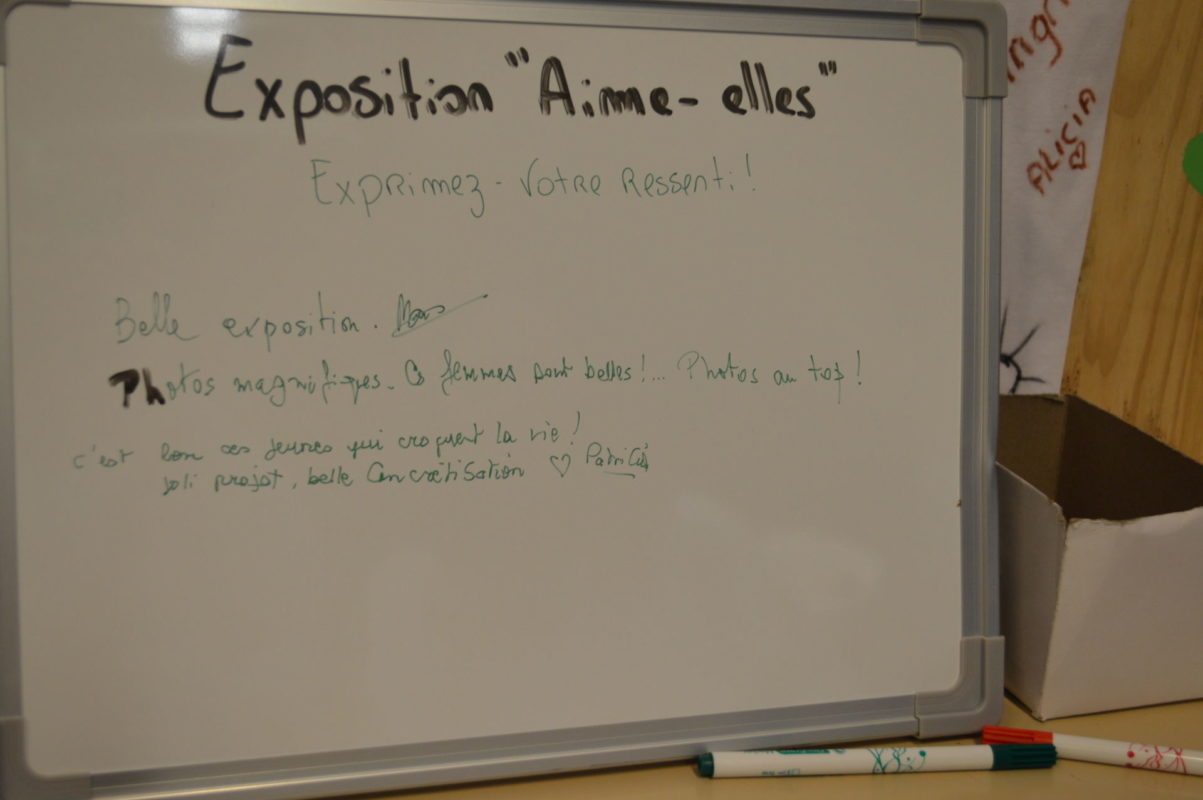 Exposition "Aimme-elles"
Exprimez-Votre Ressenti!
Belle exposition.
Photos magnifiques. Ces femmes sont belles!... Photos au top!
c'est bon ces jeunes qui croquent la vie!
joli projet, belle Concrétisation ♡ Patricia
ALICIA